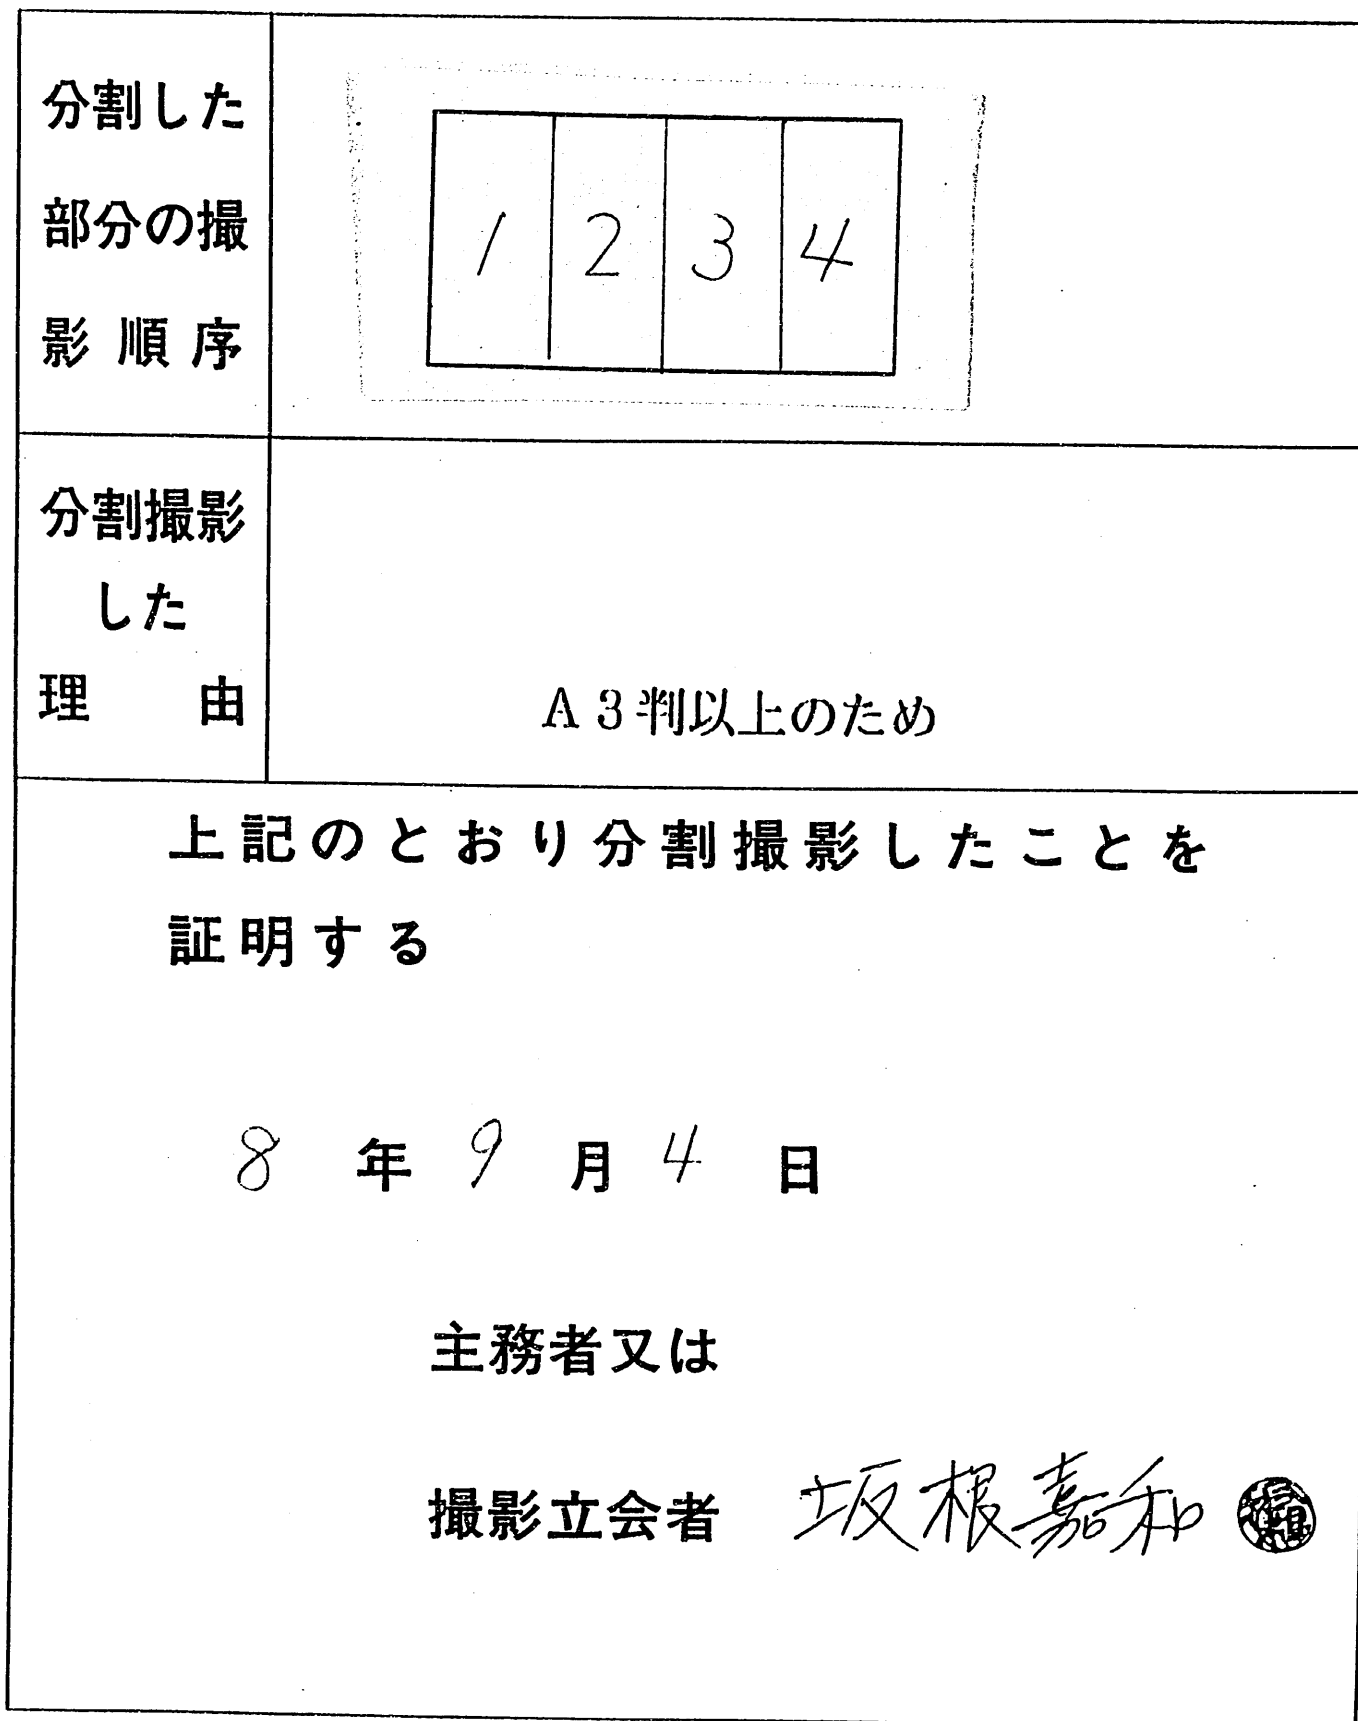 分割した
部分の撮
影順序
1 2 3 4
分割撮影
した
理由
A3判以上のため
上記のとおり分割撮影したことを
証明する
8年9月4日
主務者又は
撮影立会者 坂根嘉和